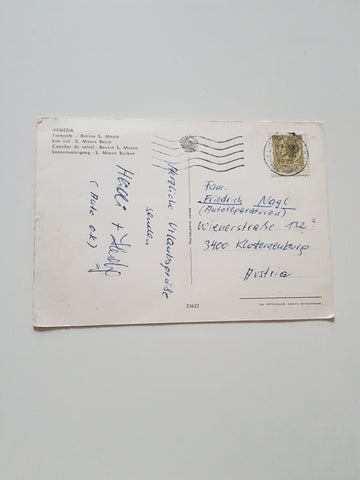 VENEZIA
Tramonto - Bacino S. Marco
Sun set - S. Marco Basin
Coucher du soleil - Bassin S. Marco
Sonnenuntergang - S. Marco Becken
Herzliche Urlaubsgrüße
senden
(Auto ok)
Fam.
Friedrich Nagl
(Autoreparaturen)
Wienerstraße 132
3400 Klosterneuburg
Austria
23622